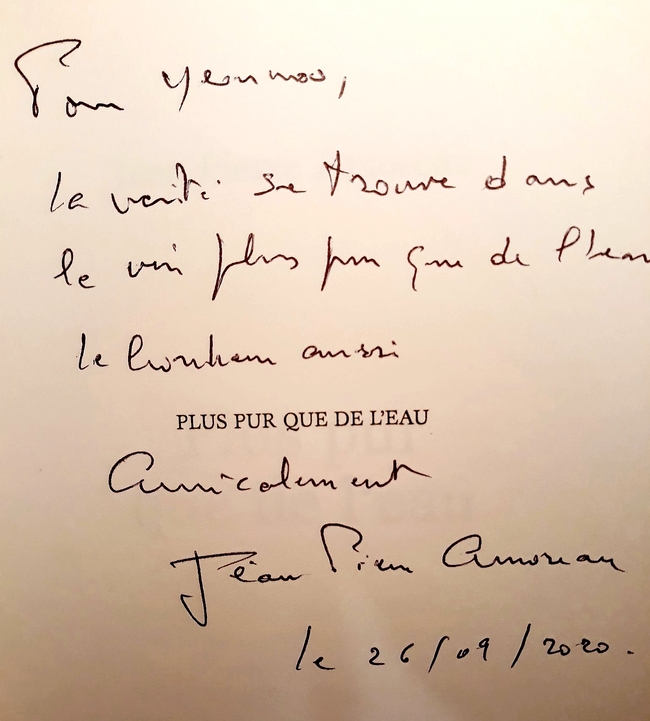 Pour Yeonmoo,
la vérité se trouve dans
le vin plus pur que de l'eau
le bonheur aussi
PLUS PUR QUE DE L'EAU
Amicalement
Jean Pierre Amoreau
le 26/09/2020.